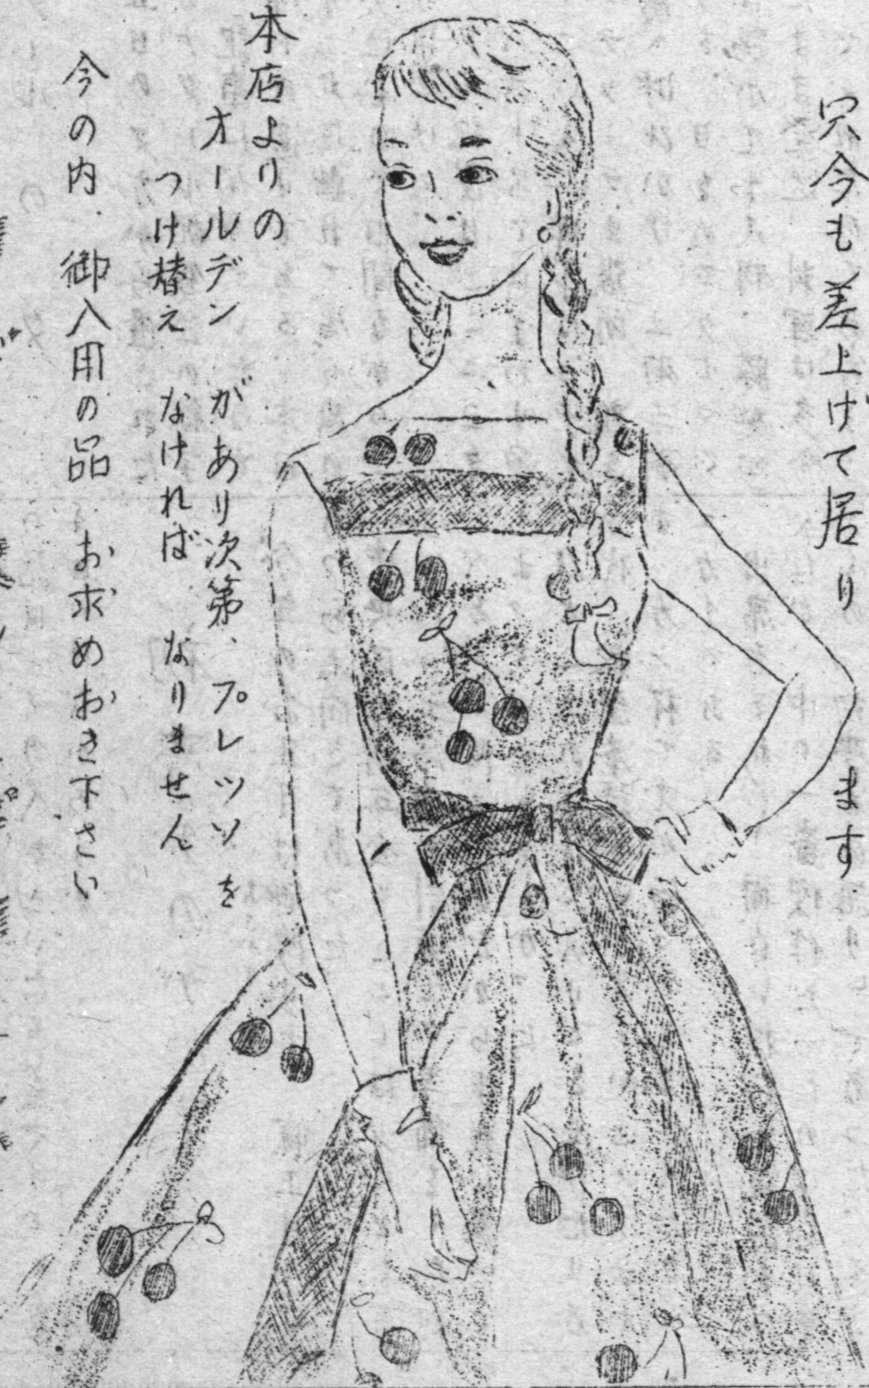 只今も差上げて居り ます
本店よりの
オールデン があり次第、プレッソを
つけ替え なければ なりません
今の内、御入用の品 お求めおき下さい